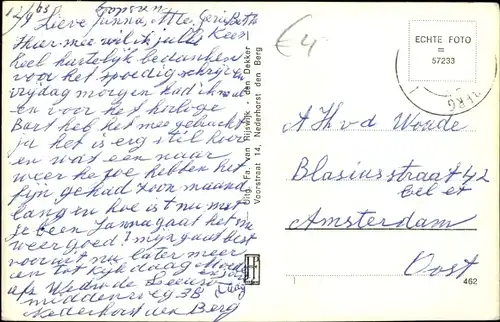 12/9 63
Lieve Janna, Mte, Gerie, Bert
Hier mee wil ik jullie Kees
heel hartelijk bedanken
voor het spoedig schrijven
vrijdag morgen had ik
en voor het horloge
Bart heb het mee gebracht
ja het is erg stil hoor
en wat een naar
weer he toe hebben het
fijn gehad zoon maand
lang en hoe is it nu met
je been Janna gaat het nu
weer goed? mijn gaat best
vooruit nu later meer
en tot kijk daag
afz Wed
middenweg 38
Nederhorst den Berg
€4
Uitg. Fa. van Rijswijk - den Dekker
Voorstraat 14, Nederhorst den Berg
ECHTE FOTO
=
57233
BERG
A H v d Woude
Blasiusstraat 42
bel et
Amsterdam
Oost
462